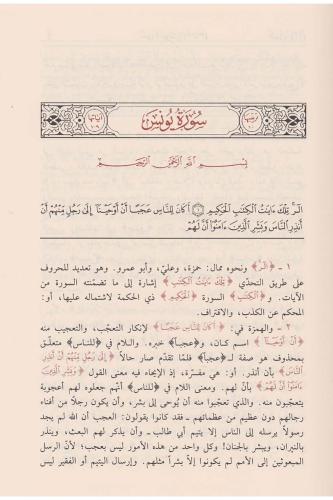 آياتها
١٠٩
سُورَةُ يُونُسَ
ترتيبها
بِسْمِ اللَّهِ الرَّحْمَٰنِ الرَّحِيمِ
الٓرۚ تِلْكَ ءَايَٰتُ ٱلْكِتَٰبِ ٱلْحَكِيمِ ١ أَكَانَ لِلنَّاسِ عَجَبًا أَنْ أَوْحَيْنَآ إِلَىٰ رَجُلٍ مِّنْهُمْ أَنْ
أَنذِرِ ٱلنَّاسَ وَبَشِّرِ ٱلَّذِينَ ءَامَنُوٓا۟ أَنَّ لَهُمْ
١ ـ ﴿الٓر﴾ ونحوه ممال: حمزة، وعليّ، وأبو عمرو. وهو تعديد للحروف
على طريق التحدّي ﴿تِلْكَ ءَايَٰتُ ٱلْكِتَٰبِ﴾ إشارة إلى ما تضمّنته السورة من
الآيات. و﴿ٱلْكِتَٰبِ﴾ السورة ﴿ٱلْحَكِيمِ﴾ ذي الحكمة لاشتماله عليها، أو:
المحكم عن الكذب، والافتراف.
٢ ـ والهمزة في: ﴿أَكَانَ لِلنَّاسِ عَجَبًا﴾ لإنكار التعجّب، والتعجيب منه
﴿أَنْ أَوْحَيْنَآ﴾ اسم كان، و«عجباً» خبره. واللام في «للناس» متعلّق
بمحذوف هو صفة لـ«عجباً» فلمّا تقدّم صار حالاً ﴿إِلَىٰ رَجُلٍ مِّنْهُمْ أَنْ أَنذِرِ
ٱلنَّاسَ﴾ بأن أنذر. أو: هي مفسّرة، إذ الإيحاء فيه معنى القول ﴿وَبَشِّرِ ٱلَّذِينَ
ءَامَنُوٓا۟ أَنَّ لَهُمْ﴾ بأنّ لهم. ومعنى اللام في «للناس» أنّهم جعلوه لهم أعجوبة
يتعجّبون منه. والذي تعجّبوا منه أن يُوحى إلى بشر، وأن يكون رجلاً من أفناء
رجالهم دون عظيم من عظمائهم ـ فقد كانوا يقولون: العجب أن الله لم يجد
رسولاً يرسله إلى الناس إلا يتيم أبي طالب ـ وأن يذكر لهم البعث، وينذر
بالنيران، ويبشر بالجنان! وكل واحد من هذه الأمور ليس بعجب؛ لأنّ الرسل
المبعوثين إلى الأمم لم يكونوا إلاّ بشراً مثلهم. وإرسال اليتيم أو الفقير ليس